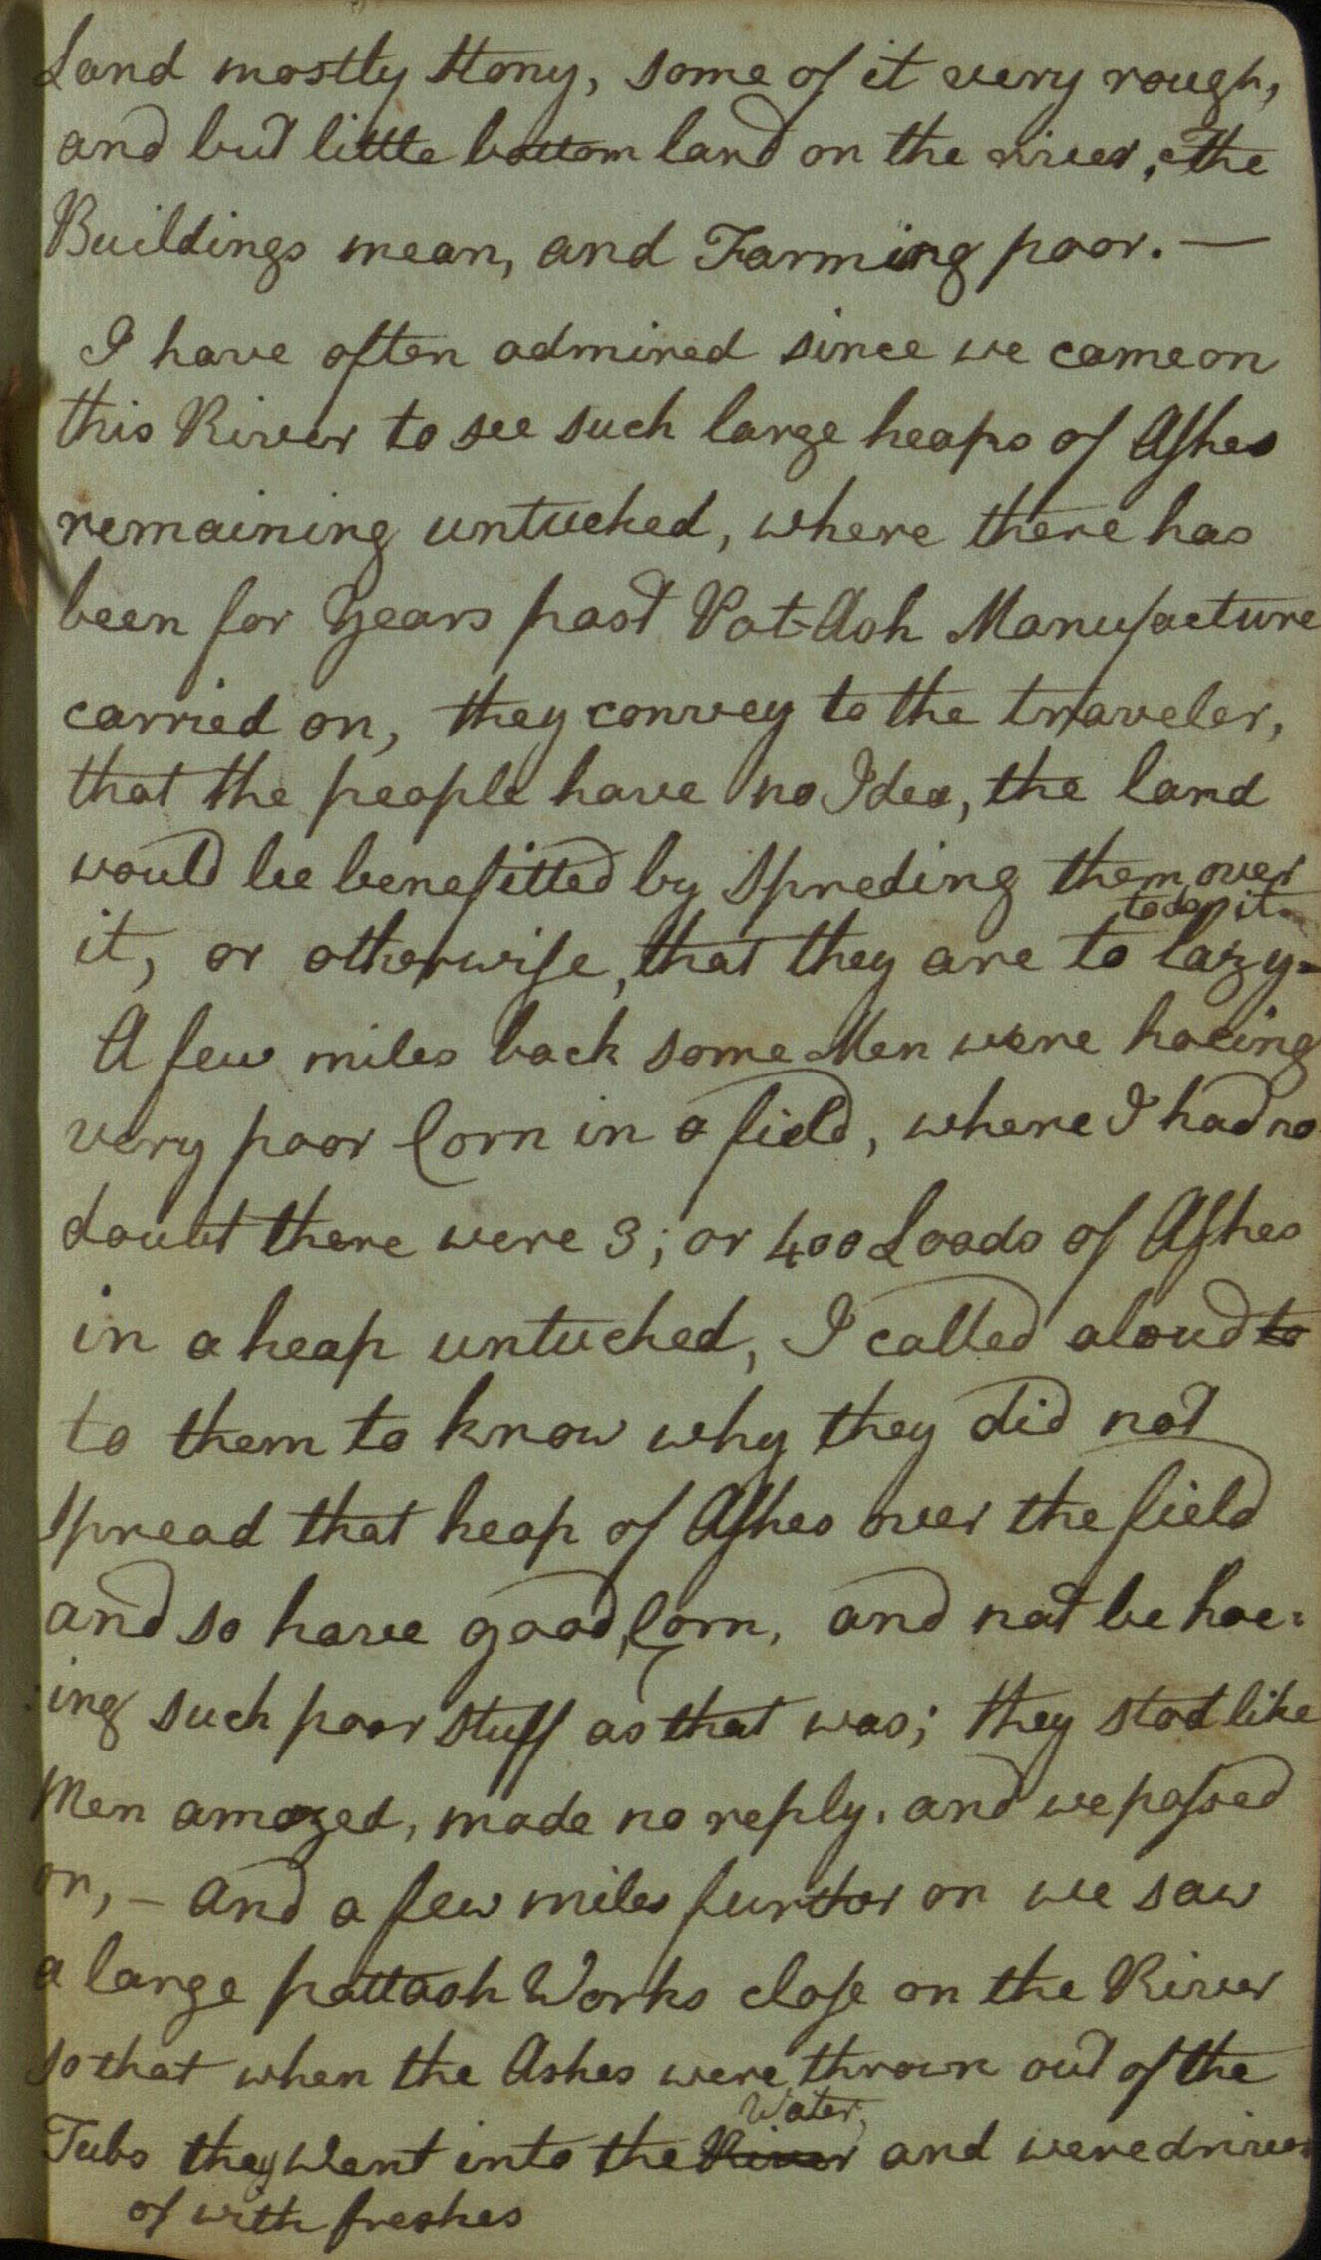 Land mostly stony, some of it very rough,
and but little bottom land on the river, the
Buildings mean, and Farming poor. —
I have often admired since we came on
this River to see such large heaps of Ashes
remaining untucked, where there has
been for Years past Pot-Ash Manufacture
carried on, they convey to the traveler,
that the people have no Idea, the land
would be benefitted by spreding them over
to do it
it, or otherwise, that they are to lazy=
A few miles back some Men were hoeing
very poor Corn in a field, where I had no
doubt there were 3; or 400 Loads of Ashes
in a heap untuched, I called aloud to
to them to know why they did not
spread that heap of Ashes over the field
and so have good, Corn, and not be hoe=
=ing such poor stuff as that was; they stod like
Men amazed, made no reply, and we passed
on, — and a few miles furter on we saw
a large pottash Works close on the River
so that when the Ashes were thrown out of the
Water,
Tubs they Went into the River and were driven
of with freshes